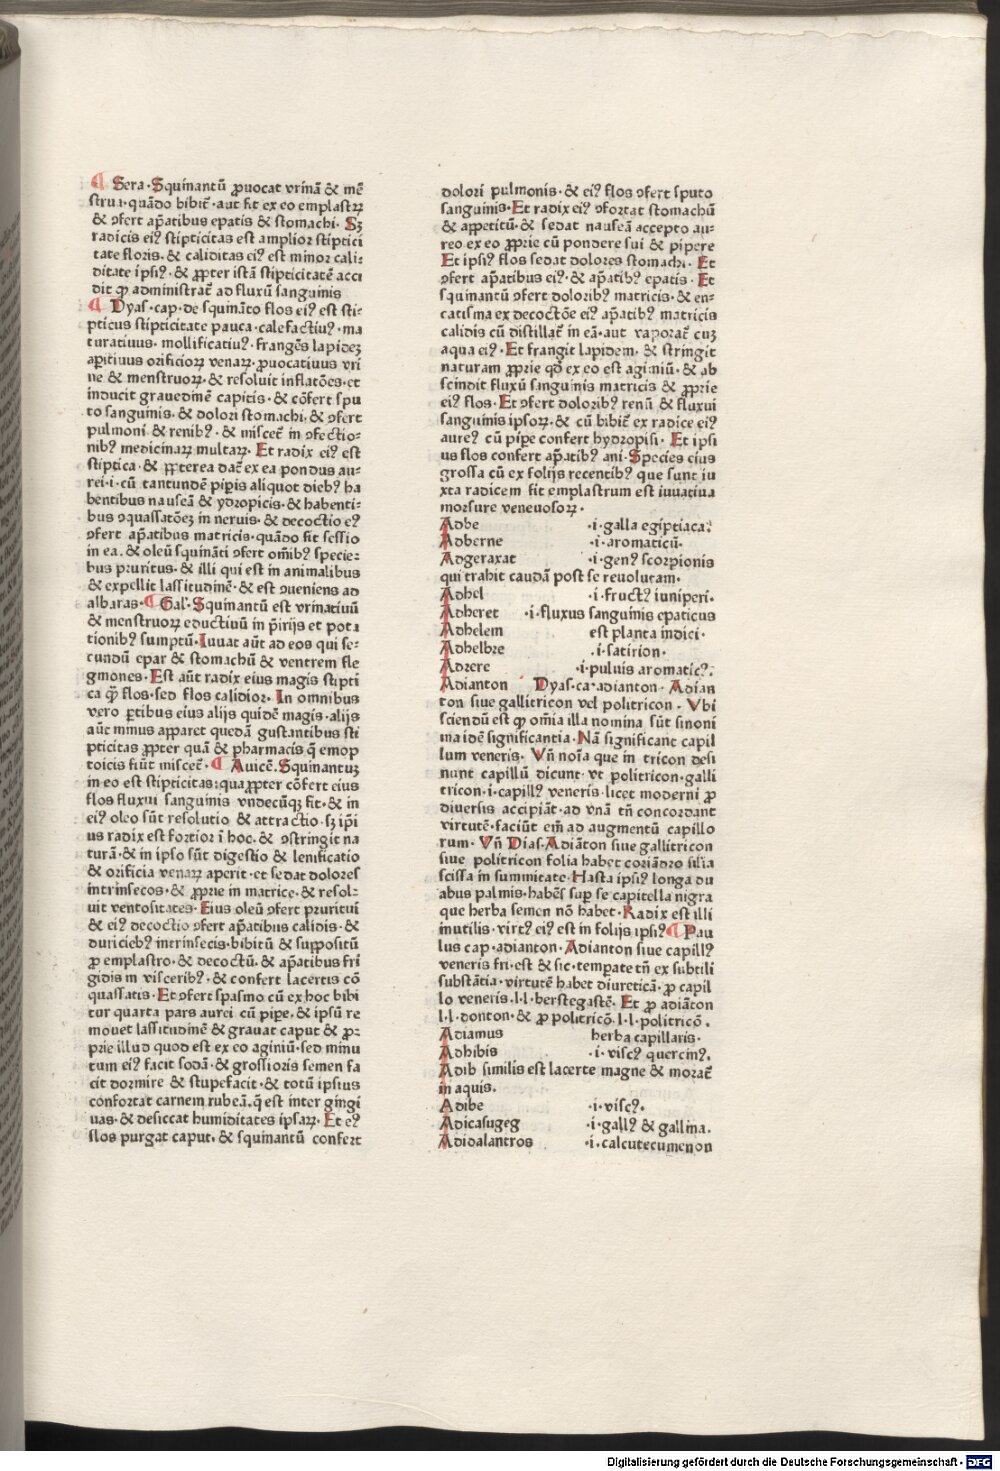 ¶ Sera·Squinantū ꝓuocat vrinā & mē
strua·quādo bibit᷑·aut fit ex eo emplastꝝ
& ꝯfert aꝑatibus epatis & stomachi· Sꝫ
radicis ei⁹ stipticitas est amplior stiptici
tate floris·& caliditas ei⁹ est minor cali⸗
ditate ipsi⁹·& ꝓpter istā stipticitatē acci
dit ꝙ administrat᷑ ad fluxū sanguinis
¶ Dyas·cap·de squināto flos ei⁹ est sti⸗
pticus stipticitate pauca·calefactiu⁹·ma
turatiuus·mollificatiu⁹·frangēs lapideꝫ
aꝑitiuus orificioꝝ venaꝝ·ꝓuocatiuus vri
ne & menstruoꝝ·& resoluit inflatōes·et
inducit grauedinē capitis·& cōfert spu
to sanguinis·& dolori stomachi·& ꝯfert
pulmoni·& renib⁹·& miscet᷑ in ꝯfectio⸗
nib⁹ medicinaꝝ multaꝝ·Et radix ei⁹ est
stiptica·& ꝓpterea dat᷑ ex ea pondus au⸗
rei·i·cū tantundē piꝑis aliquot dieb⁹ ha
bentibus nauseā & ydropicis·& habenti⸗
bus ꝯquassatōeꝫ in neruis·& decoctio e⁹
ꝯfert aꝑatibus matricis·quādo fit sessio
in ea·& oleū squināti ꝯfert om̄ib⁹ specie⸗
bus pruritus·& illi qui est in animalibus
& expellit lassitudinē·& est ꝯueniens ad
albaras·¶Gal'·Squinantū est vrinatiuū
& menstruoꝝ eductiuū in p̄rijs et pota
tionib⁹ sumptū·Iuuat aūt ad eos qui se⸗
cundū epar & stomachū & ventrem fle
gmones·Est aūt radix eius magis stipti
ca q̄ flos·sed flos calidior·In omnibus
vero ꝑtibus eius alijs quidē magis·alijs
aūt minus apparet quedā gustantibus sti
pticitas ꝓpter quā & pharmacis q̄ emop
toicis fiūt miscet᷑·¶ Auicē·Squinantuꝫ
in eo est stipticitas:quaꝓpter cōfert eius
flos fluxui sanguinis vndecūqꝫ fit·& in
ei⁹ oleo sūt resolutio & attractio·sꝫ ip̄i
us radix est fortior ī hoc·& ꝯstringit na
turā·& in ipso sūt digestio & lenificatio
& orificia venaꝝ aperit·et sedat dolores
intrinsecos·& ꝓprie in matrice·& resol⸗
uit ventositates·Eius oleū ꝯfert pruritui
& ei⁹ decoctio ꝯfert aꝑatibus calidis·&
duricieb⁹ intrinsecis·bibitū & suppositū
ꝓ emplastro·& decoctū·& aꝑatibus fri
gidis in visceribꝰ·& confert lacertis cō
quassatis·Et ꝯfert spasmo cū ex hoc bibi
tur quarta pars aurei cū piꝑe·& ipsū re
mouet lassitudinē & grauat caput & ꝓ⸗
prie illud quod est ex eo aginiū·sed minu
tum ei⁹ facit sodā·& grossioris semen fa
cit dormire & stupefacit·& totū ipsius
confortat carnem rubeā·q̄ est inter gingi
uas·& desiccat humiditates ipsaꝝ·Et e⁹
flos purgat caput·& squinantū confert
dolori pulmonis·& ei⁹ flos ꝯfert sputo
sanguinis·Et radix ei⁹ ꝯfortat stomachū
& appetitū·& sedat nauseā accepto au⸗
reo ex eo ꝓprie cū pondere sui & pipere
Et ipsi⁹ flos sedat dolores stomachi· Et
ꝯfert aꝑatibus ei⁹·& aꝑatib⁹ epatis·Et
squinantū ꝯfert dolorib⁹ matricis·& en⸗
catisma ex decoctōe ei⁹ aꝑatib⁹ matricis
calidis cū distillat᷑ in eā·aut vaporat᷑ cuꝫ
aqua ei⁹·Et frangit lapidem·& stringit
naturam ꝓprie qd̄ ex eo est aginiū·& ab
scindit fluxū sanguinis matricis & ꝓprie
ei⁹ flos·Et ꝯfert dolorib⁹ renū & fluxui
sanguinis ipsoꝝ·& cū bibit᷑ ex radice ei⁹
aure⁹ cū piꝑe confert hydropisi·Et ipsi
us flos confert aꝑatib⁹ ani·Species eius
grossa cū ex folijs recentib⁹ que sunt iu
xta radicem fit emplastrum est iuuatiua
morsure veneuosoꝝ·
Adbe ·i·galla egiptiaca:
Adberne ·i·aromaticū·
Adgeraxat ·i·gen⁹ scorpionis
qui trahit caudā post se reuolutam·
Adhel ·i·fruct⁹ iuniperi·
Adheret ·i·fluxus sanguinis epaticus
Adhelem est planta indici·
Adhelbre ·i·satirion·
Adzere ·i·puluis aromatic⁹:
Adianton Dyas·ca·adianton·Adian
ton siue gallitricon vel politricon·Vbi
sciendū est ꝙ om̄ia illa nomina sūt sinoni
ma idē significantia·Nā significant capil
lum veneris·Vn̄ noīa que in tricon desi
nunt capillū dicunt·vt politricon·galli
tricon·i·capill⁹ veneris·licet moderni ꝓ
diuersis accipiāt·ad vnā tn̄ concordant
virtutē·faciūt em̄ ad augmentū capillo
rum·Vn̄ Dias·Adiāton siue gallitricon
siue politricon folia habet coriādro sil'ia
scissa in summitate·Hasta ipsi⁹ longa du
abus palmis·habēs suꝑ se capitella nigra
que herba semen nō habet·Radix est illi
inutilis·virt⁹ ei⁹ est in folijs ipsi⁹¶Pau
lus cap·adianton·Adianton siue capill⁹
veneris fri·est & sic·temꝑate tn̄ ex subtili
substātia·virtutē habet diureticā·ꝓ capil
lo veneris·l·l·berstegastē·Et ꝓ adiāton
l·l·donton·& ꝓ politricō·l·l·politricō·
Adiamus herba capillaris·
Adhibis ·i·visc⁹ quercin⁹·
Adib similis est lacerte magne & morat᷑
in aquis·
Adibe ·i·visc⁹·
Adicasugeg ·i·gall⁹ & gallina·
Adidalantros ·i·calcutecumenon
Digitalisierung gefördert durch die Deutsche Forschungsgemeinschaft - DFG